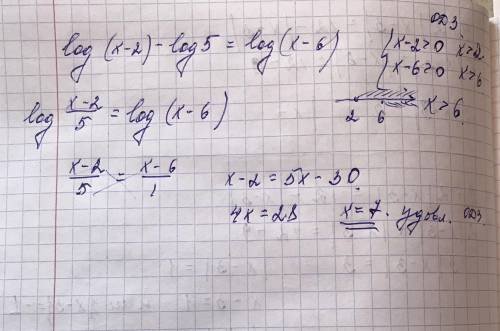 ОДЗ
log (x-2) - log 5 = log (x-6)
{ x-2>0 x>2
x-6>0 x>6
2 6 x>6
log x-2/5 = log (x-6)
x-2/5 = x-6/1
x-2 = 5x-30
4x = 28 x=7. удовл. ОДЗ.